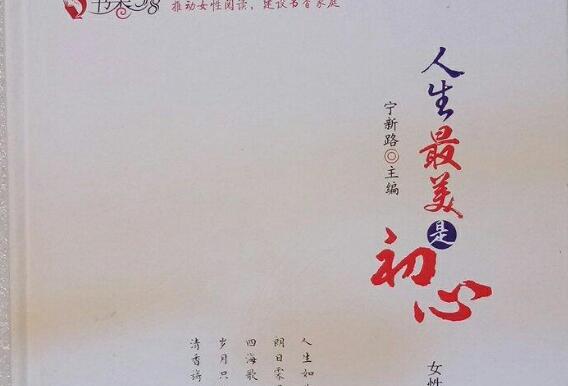 书香
推动女性阅读，建设书香家庭
人生最美是初心
宁新路◎主编
女性
人生如
明日霁
四海歌
岁月只
清香